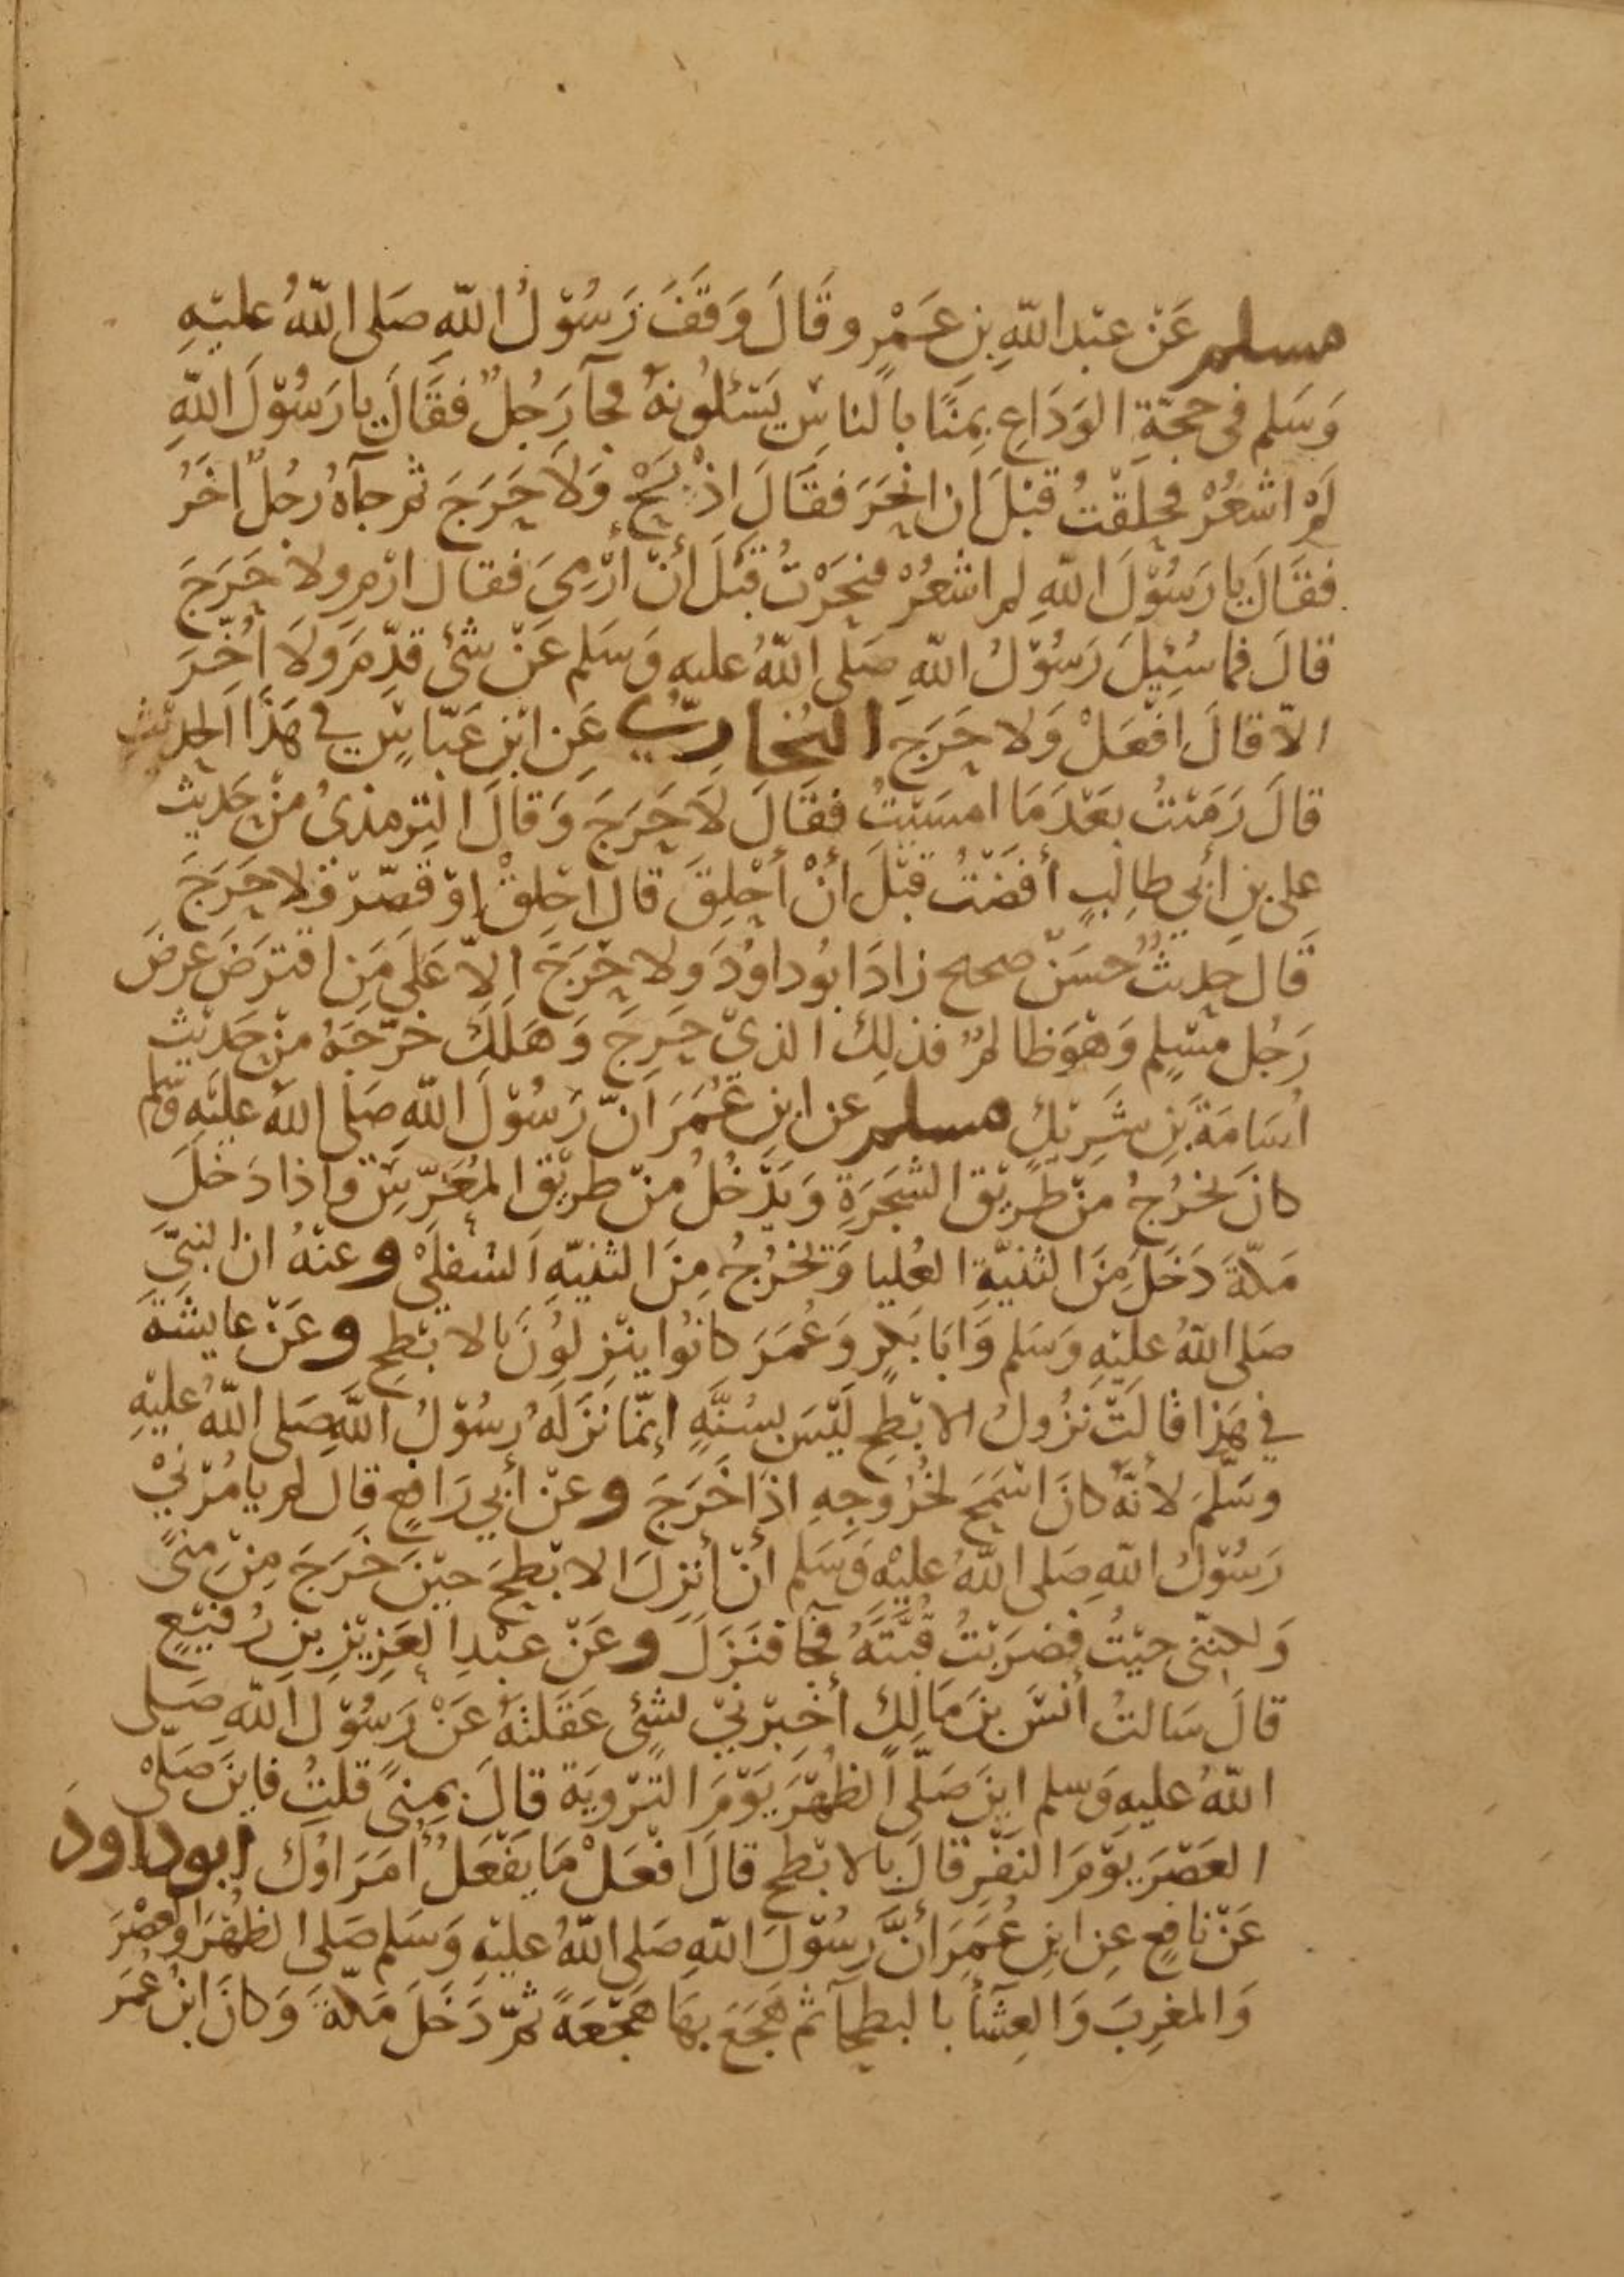 مسلم عَنْ عبْد اللّهِ بنِ عَمْرٍو قَالَ وَقَفَ رَسُوْلُ اللّهِ صَلى اللّهُ عليْهِ
وَسَلم فى حجّةِ الوَدَاعِ بِمِنًا بالناسِ يَسْئلُونهُ فجآ رَجُلٌ فقَالَ يا رَسُوْلَ اللّهِ
لَمْ اشعُرْ فحلَقتُ قبْلَ ان انحَرَ فقَالَ اذْبَحْ وَلاَ حَرَجَ ثم جآهُ رجُلٌ اخَرُ
فقَالَ يا رَسُوْلَ اللّهِ لم اشعُرْ فنحَرْتُ قبْلَ أنْ أرْمِيَ فقال ارْمِ ولا حَرَجَ
قالَ فما سُئِيلَ رَسُوْلُ اللّهِ صَلى اللّهُ عليه وَسَلم عَنْ شئ قدِّمَ وَلاَ اُخِّرَ
الاّ قالَ افْعَلْ وَلا حَرَجَ البُخاريّ عَنِ ابْنِ عَبّاسٍ في هَذَا الحديْثِ
قالَ رَمَيْتُ بعْدَ مَا امسَيْتُ فقَالَ لاَ حَرَجَ وَقالَ التِرمذىُ منْ حَديث
على بنِ أبي طالِبٍ أفَضْتُ قبْلَ أنْ أحْلِقَ قال احْلِقْ اوْ قصِّرْ وَلا حَرَجَ
قَال حديثٌ حسَنٌ صحيح زادَ ابُو داوُدَ وَلا حَرَجَ الاّ عَلَى مَنِ اقترَضَ عرضَ
رَجُل مسْلِمٍ وَهْوَ ظالمٌ فذلِكَ الذيْ حَرِجَ وَهَلَكَ خرّجَهُ منْ حَديْث
اُسَامَةَ بْنِ شَرِيْكٍ مسلم عن ابنِ عُمَرَ انّ رَسُوْلَ اللّهِ صَلى اللّهُ عليْهِ وَسَلم
كانَ يخرُجُ منْ طَرِيْق الشجَرَةِ وَيَدْخُلُ منْ طريْق المُعَرّسِ وَاذا دَخلَ
مَكّةَ دَخَلَ مِنَ الثنيّةِ العُليا وَيَخْرُجُ مِنَ الثنيّهِ السُفلَىْ وعنْهُ ان النبيَّ
صَلى اللّهُ عليْهِ وَسَلم وَابَا بَكرٍ وَعُمَرَ كانُوا ينْزِلُوْنَ بالابْطحِ وعَنْ عايشةَ
في هَذا قالَتْ نزُولُ الابْطحِ لَيْسَ بسُنّةٍ إنمّا نزَلَهُ رسُوْلُ اللّهِ صَلى اللّهُ عليْهِ
وسَلّمَ لأنّهُ كانَ اسْمَحَ لخُرُوجِهِ اذَا خَرَجَ وعَنْ أبي رَافعٍ قال لم يامُرْنيْ
رَسُوْلُ اللّهِ صَلى اللّهُ عليْهِ وَسَلم أنْ أنزِلَ الابْطحَ حيْنَ خَرَجَ مِنْ مِنىً
وَلكننى جيْتُ فضرَبْتُ قبّتَهُ فجآ فنَزَلَ وعَنْ عبْدِ العَزِيْزِ بنِ رُفيْعٍ
قالَ سَالتُ أنَسَ بنَ مَالِكٍ أخبِرْنيْ لشئٍ عَقَلتَهُ عَنْ رَسُوْل اللّهِ صَلى
اللّهُ عليهِ وَسلم اينَ صَلّى الظهْرَ يَوْمَ التَرْويَة قالَ بمِنىً قلتُ فاينَ صَلىْ
العَصْرَ يَوْمَ النَفْرِ قالَ بالابْطحِ قالَ افْعَلْ مَا يَفْعَلُ أُمَرَاوُكَ ابو داودَ
عَنْ نافعٍ عِن ابنِ عُمَرَ أنَّ رَسُوْلَ اللّهِ صَلى اللّهُ عليْهِ وَسَلم صَلى الظهْرَ وَالعَصْرَ
وَالمغرِبَ وَالعِشآ بالبطحآ ثم هَجَعَ بهَا هَجْعَةً ثمّ دَخَلَ مَكّةَ وَكانَ ابْنُ عُمَرَ